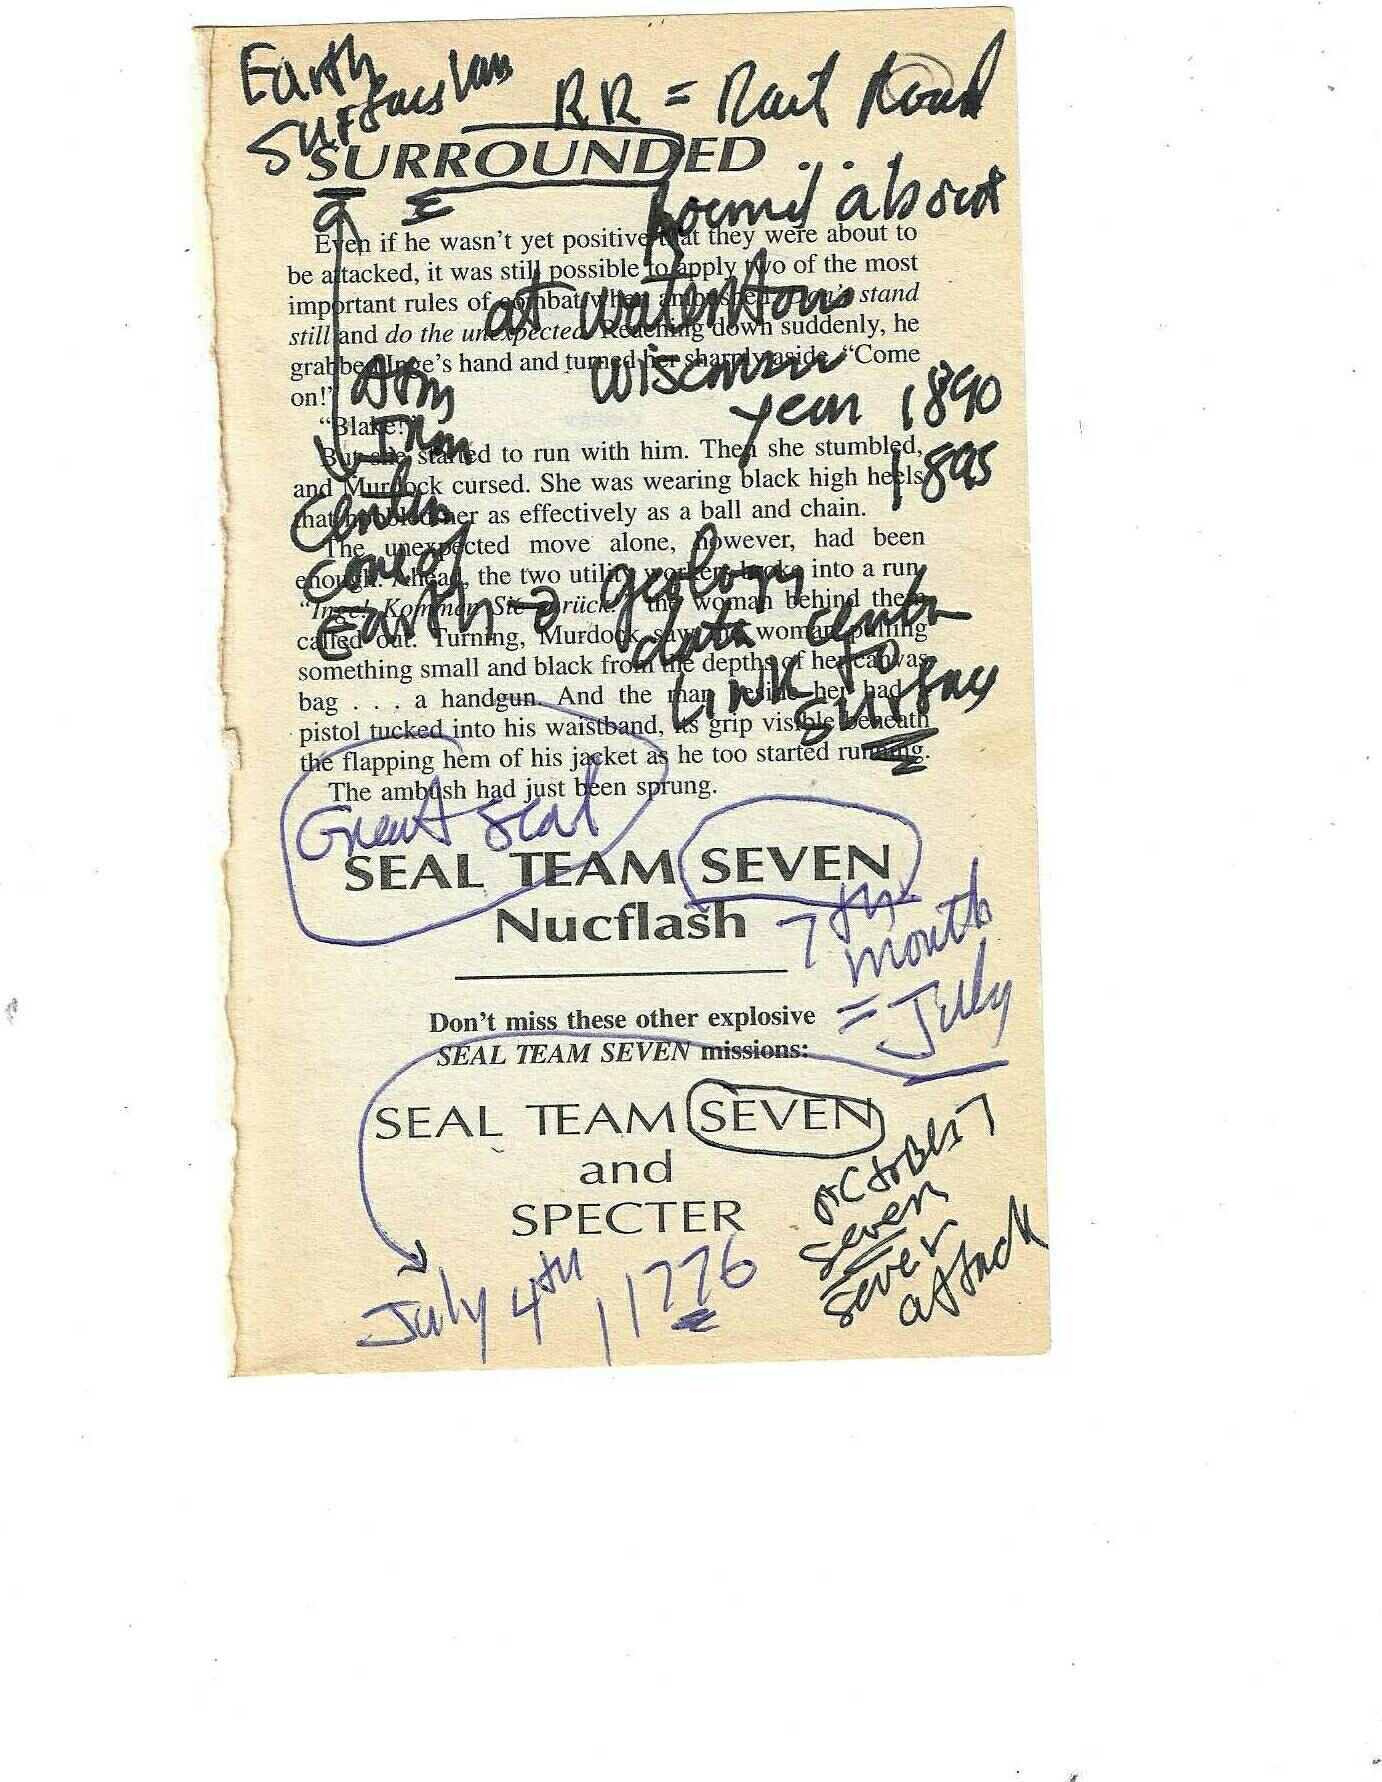 Earth
surfaces laws
RR = Rail Road
SURROUNDED . . .
Round about
Even if he wasn't yet positive that they were about to
be attacked, it was still possible to apply two of the most
important rules of combat when ambushed. Don't stand
at Watertown
still and do the unexpected. Reaching down suddenly, he
grabbed Inge's hand and turned her sharply aside. "Come
Wisconsin
on!"
year 1890
"Blake!"
But she started to run with him. Then she stumbled,
1895
and Murdock cursed. She was wearing black high heels
center
that hobbled her as effectively as a ball and chain.
The unexpected move alone, however, had been
core of
enough. Ahead, the two utility workers broke into a run.
geology
"Inge! Kommen Sie zurück!" the woman behind them
Earth →
data center
called out. Turning, Murdock saw the woman pulling
something small and black from the depths of her canvas
Link to
bag . . . a handgun. And the man beside her had a
surfacs
pistol tucked into his waistband, its grip visible beneath
the flapping hem of his jacket as he too started running.
The ambush had just been sprung.
Great Seal
SEAL TEAM SEVEN
Nucflash
7th
month
= July
Don't miss these other explosive
SEAL TEAM SEVEN missions:
SEAL TEAM SEVEN
and
SPECTER
October 7
Seven
Sever
attack
July 4th 1776